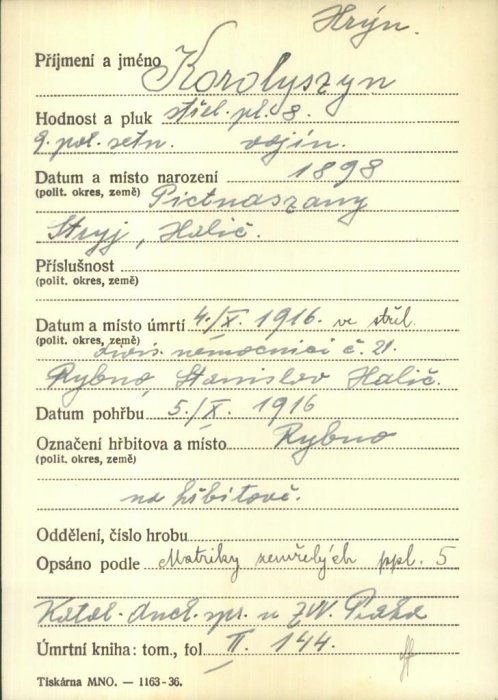 Hrýn.
Příjmení a jméno Korolyszyn
Hodnost a pluk střel. pl. 8.
9. pol. setn. vojín.
Datum a místo narození 1898
(polit. okres, země) Pictnaszany
Stryj, Halič.
Příslušnost
(polit. okres, země)
Datum a místo úmrtí 4./X. 1916. ve střel.
(polit. okres, země) divis. nemocnici č. 21.
Rybno, Stanislov Halič.
Datum pohřbu 5./X. 1916
Označení hřbitova a místo Rybno
(polit. okres, země)
na hřbitově.
Oddělení, číslo hrobu
Opsáno podle Matriky zemřelých ppl. 5
Katol. duch. spr. u ZVV. Praha
Úmrtní kniha: tom., fol II. 144.
Tiskárna MNO. — 1163-36.